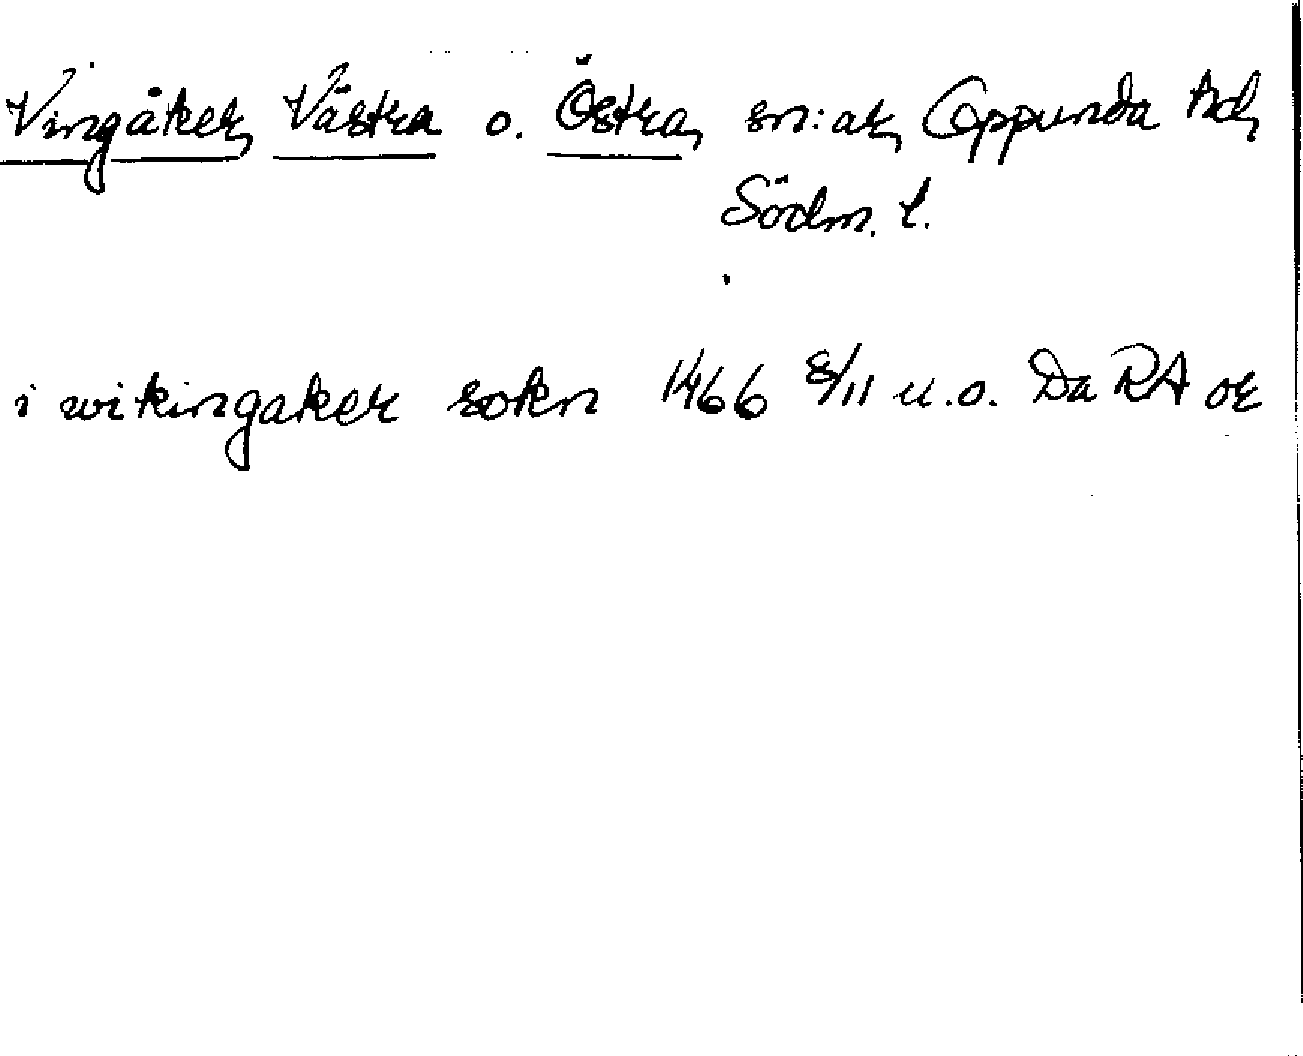 Vingåker, Västra o. Östra, sn:ar, Oppunda hd,
Södm. l.
i wikingaker sokn 1466 8/11 u.o. Da RA or